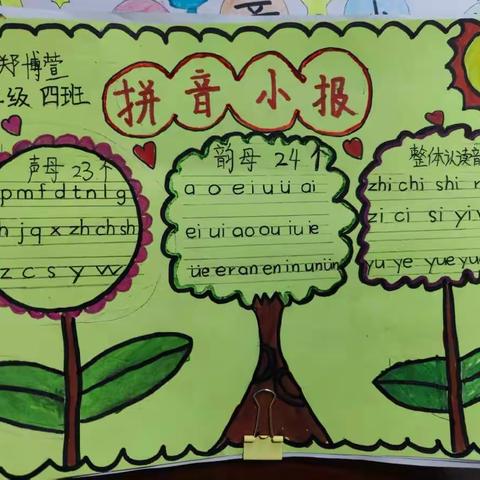 郑博萱
级 四班
拼音小报
声母 23个
p m f d t n l g
h j q x zh ch sh
z c s y w
韵母 24个
a o e i u ü ai
ei ui ao ou iu ie
üe er an en in un ün
整体认读音
zhi chi shi r
zi ci si yi w
yu ye yue yu